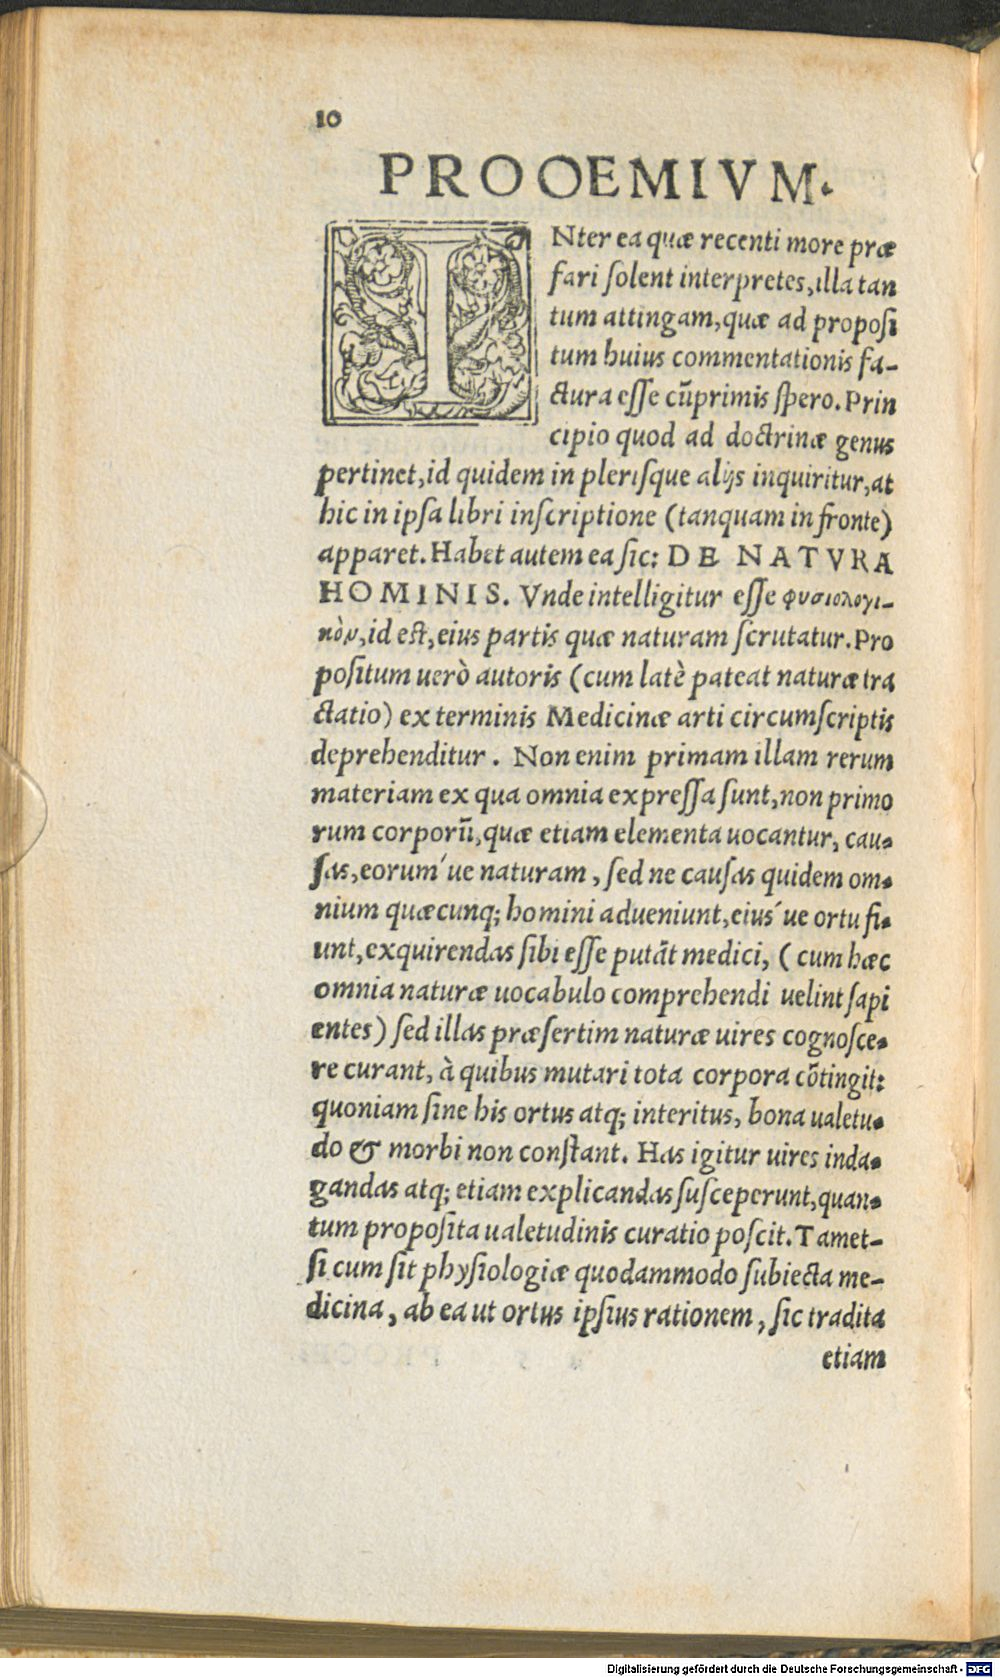 10
PROOEMIVM.
INter ea quæ recenti more præ
fari ſolent interpretes, illa tan
tum attingam, quæ ad propoſi
tum huius commentationis fa-
ctura eſſe cũprimis ſpero. Prin
cipio quod ad doctrinæ genus
pertinet, id quidem in pleriſque alijs inquiritur, at
hic in ipſa libri inſcriptione (tanquam in fronte)
apparet. Habet autem ea ſic: DE NATVRA
HOMINIS. Vnde intelligitur eſſe φυσιολογι-
κὸν, id eſt, eius partis quæ naturam ſcrutatur. Pro
poſitum uerò autoris (cum latè pateat naturæ tra
ctatio) ex terminis Medicinæ arti circumſcriptis
deprehenditur. Non enim primam illam rerum
materiam ex qua omnia expreſſa ſunt, non primo
rum corporũ, quæ etiam elementa uocantur, cau-
ſas, eorum´ue naturam, ſed ne cauſas quidem om-
nium quæcunq; homini adueniunt, eius´ue ortu fi-
unt, exquirendas ſibi eſſe putãt medici, (cum hæc
omnia naturæ uocabulo comprehendi uelint ſapi
entes) ſed illas præſertim naturæ uires cognoſce-
re curant, à quibus mutari tota corpora cõtingit:
quoniam ſine his ortus atq; interitus, bona ualetu-
do & morbi non conſtant. Has igitur uires inda-
gandas atq; etiam explicandas ſuſceperunt, quan-
tum propoſita ualetudinis curatio poſcit. Tamet-
ſi cum ſit phyſiologiæ quodammodo ſubiecta me-
dicina, ab ea ut ortus ipſius rationem, ſic tradita
etiam
Digitalisierung gefördert durch die Deutsche Forschungsgemeinschaft - DFG